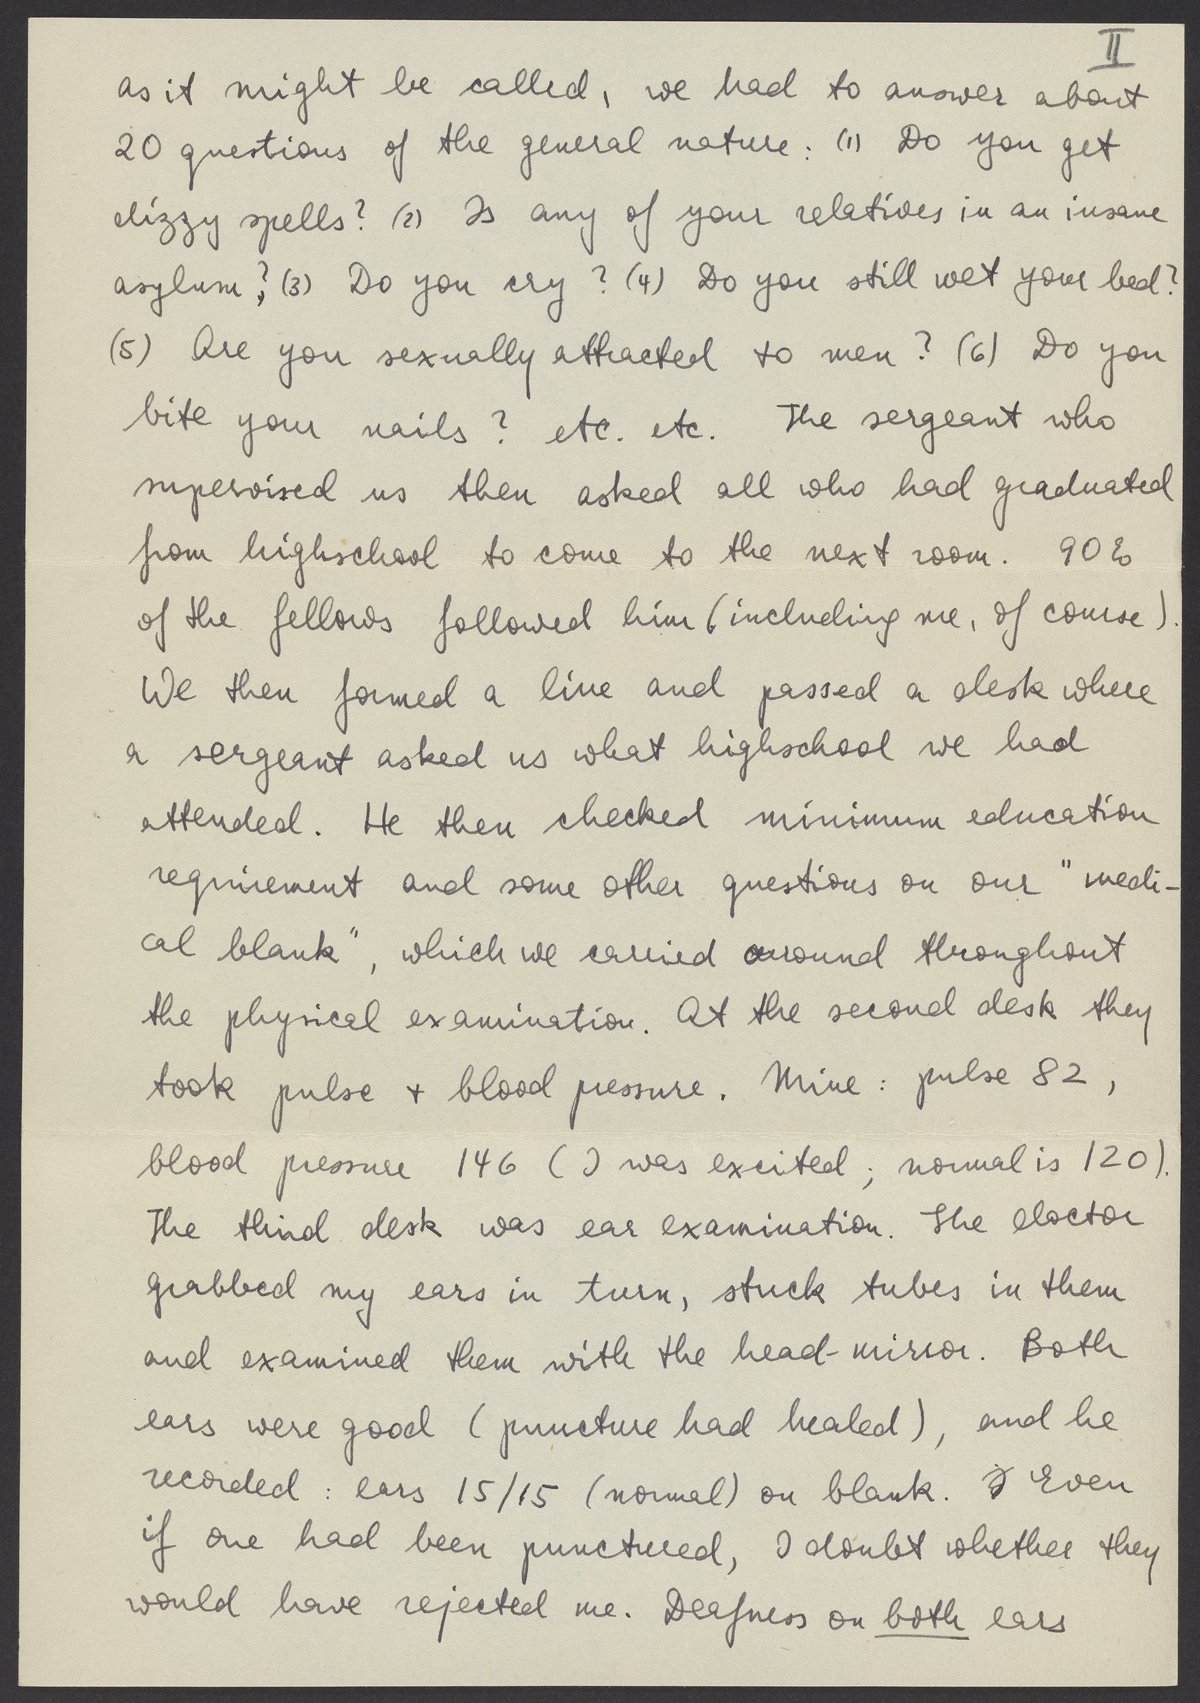 II
as it might be called, we had to answer about
20 questions of the general nature: (1) Do you get
dizzy spells? (2) Is any of your relatives in an insane
asylum?, (3) Do you cry? (4) Do you still wet your bed?
(5) Are you sexually attracted to men? (6) Do you
bite your nails? etc. etc. The sergeant who
supervised us then asked all who had graduated
from highschool to come to the next room. 90%
of the fellows followed him (including me, of course).
We then formed a line and passed a desk where
a sergeant asked us what highschool we had
attended. He then checked minimum education
requirement and some other questions on our "medi-
cal blank", which we carried around throughout
the physical examination. At the second desk they
took pulse + blood pressure. Mine: pulse 82,
blood pressure 146 (I was excited; normal is 120).
The third desk was ear examination. The doctor
grabbed my ears in turn, stuck tubes in them
and examined them with the head-mirror. Both
ears were good (puncture had healed), and he
recorded: ears 15/15 (normal) on blank. Even
if one had been punctured, I doubt whether they
would have rejected me. Deafness on both ears